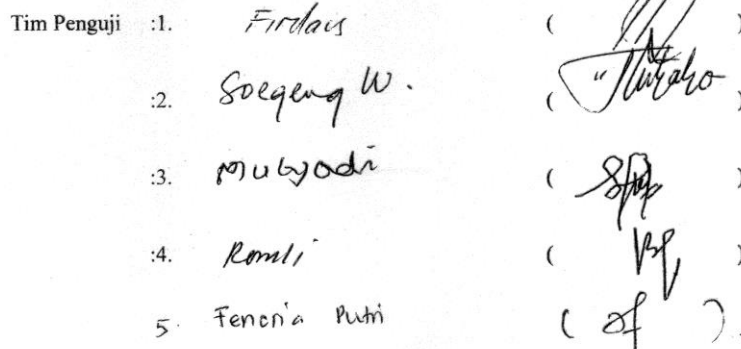 Tim Penguji :1. Firdaus ( )
:2. Soegeng W. ( )
:3. Mulyadi ( )
:4. Romli ( )
5. Fenenia Putri ( )